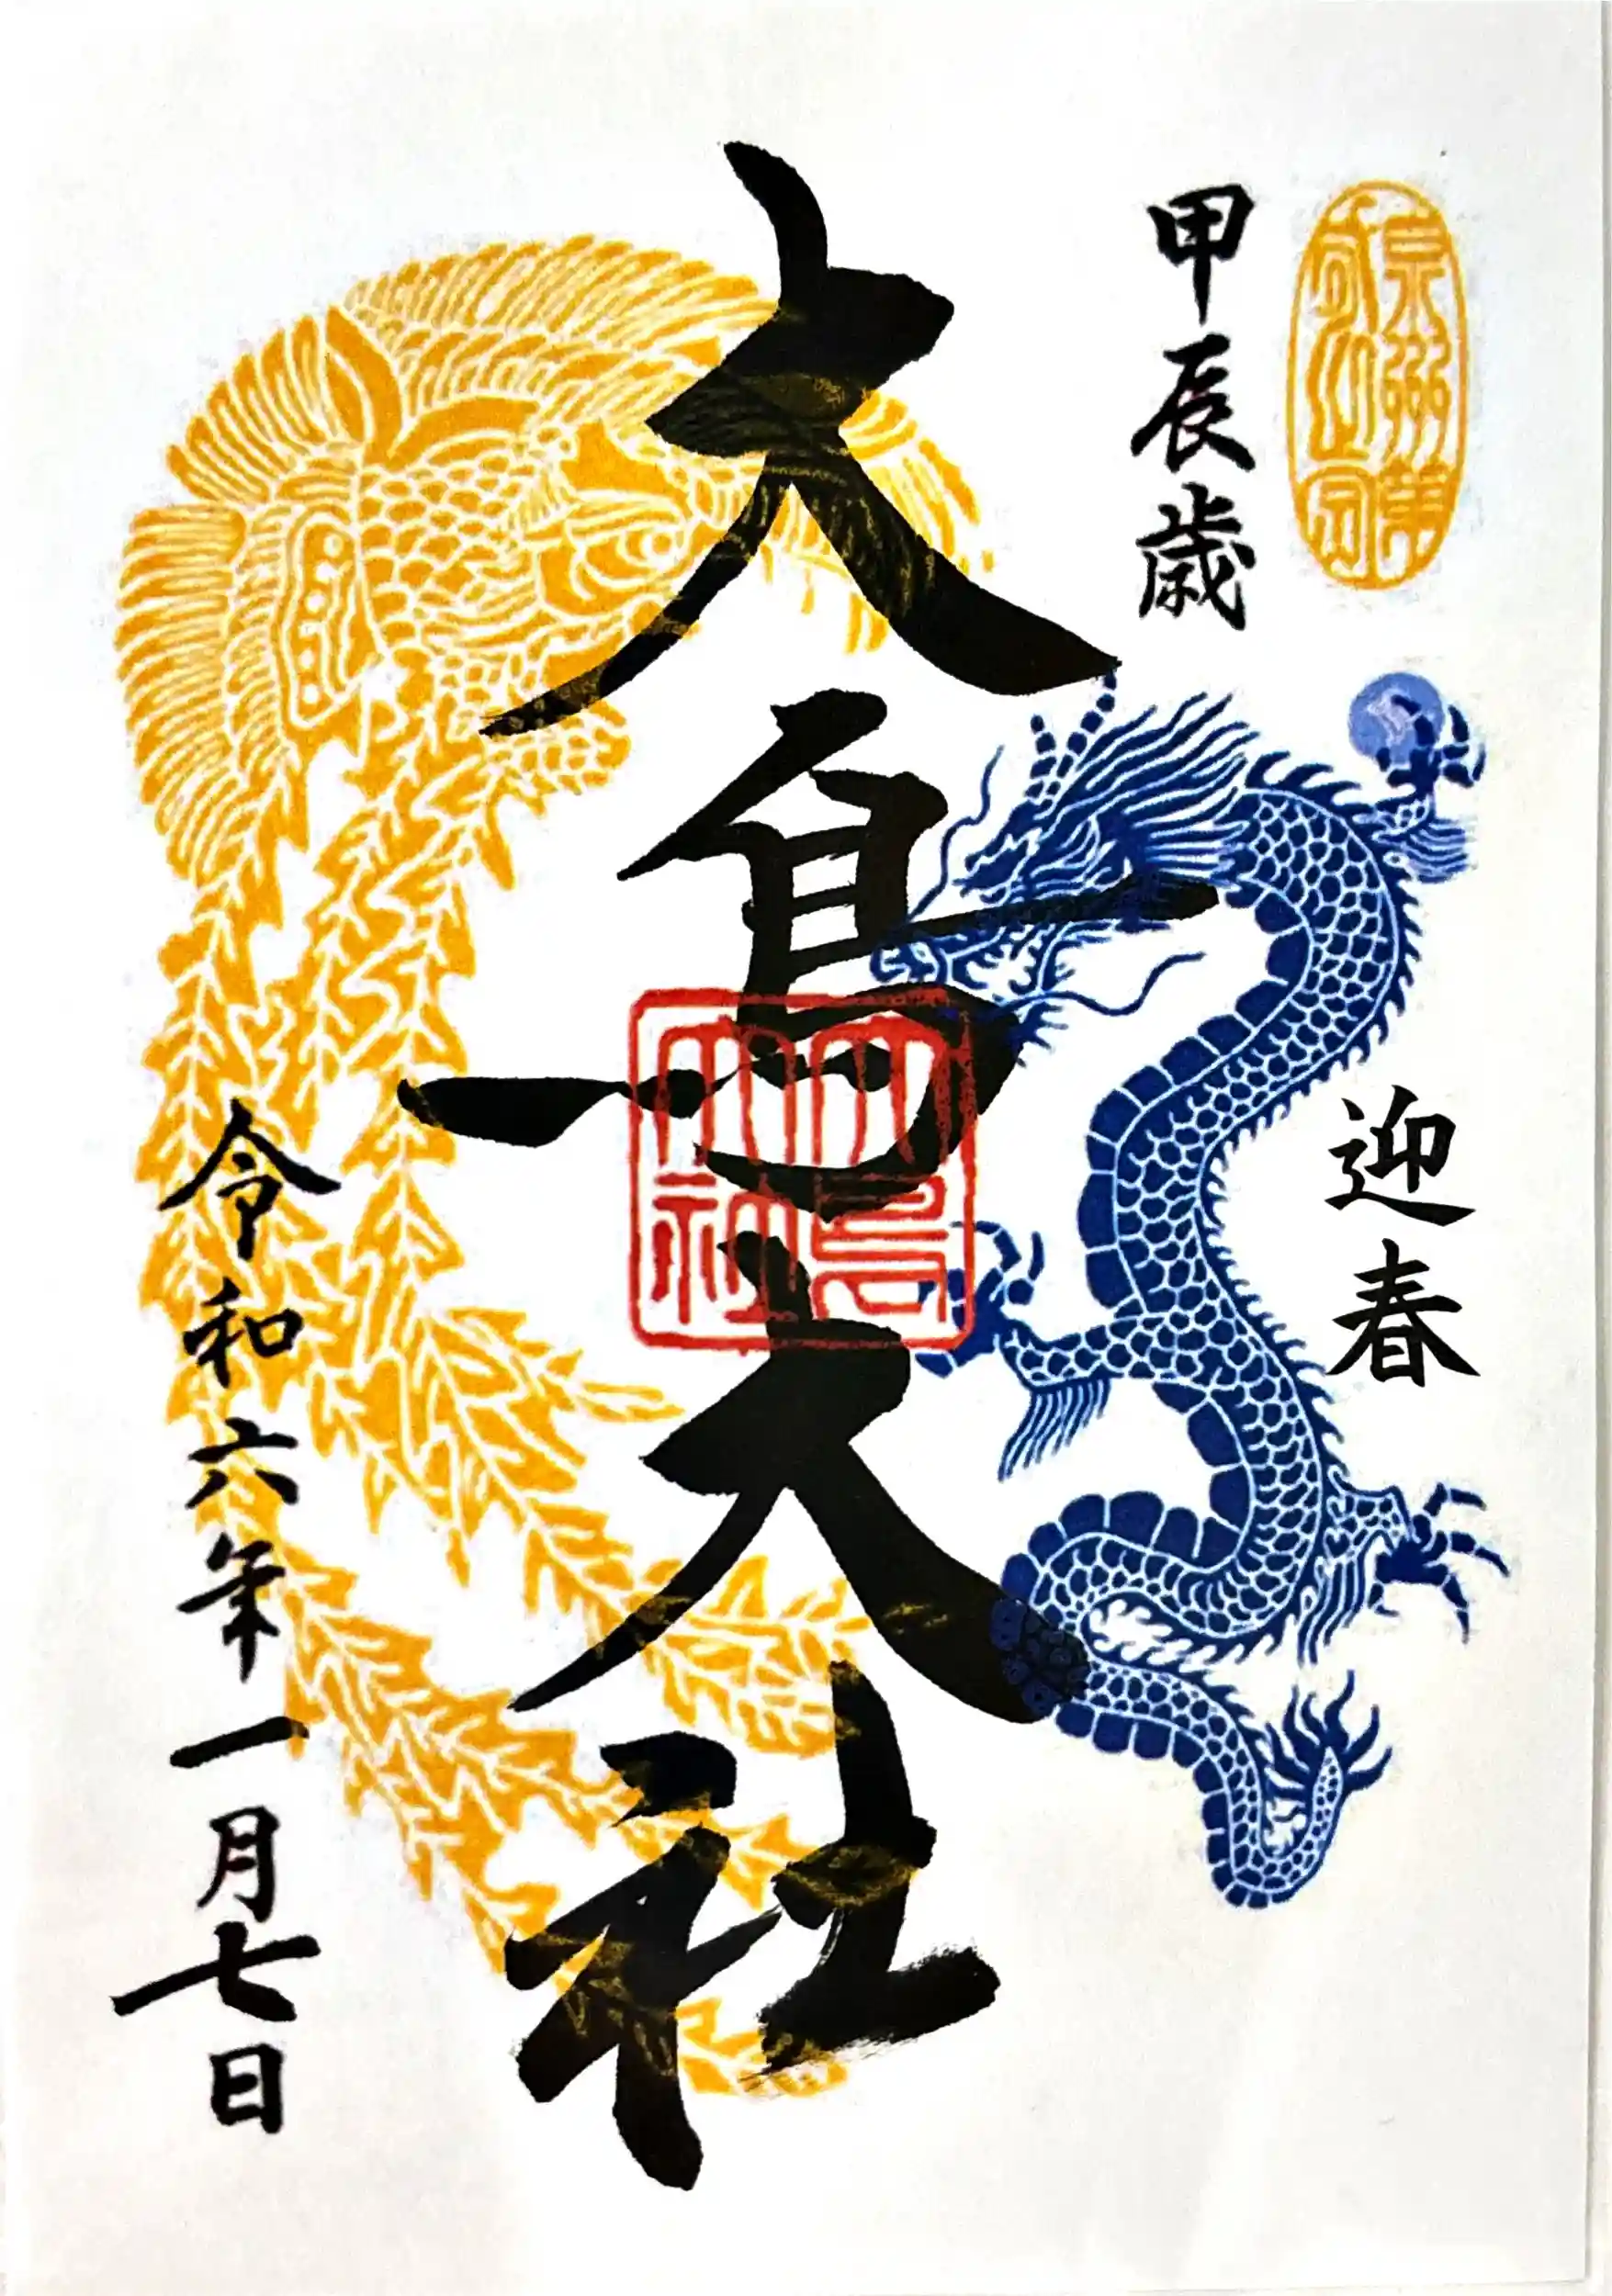 甲辰歳
迎春
大鳥大社
大鳥
大社
令和六年一月七日